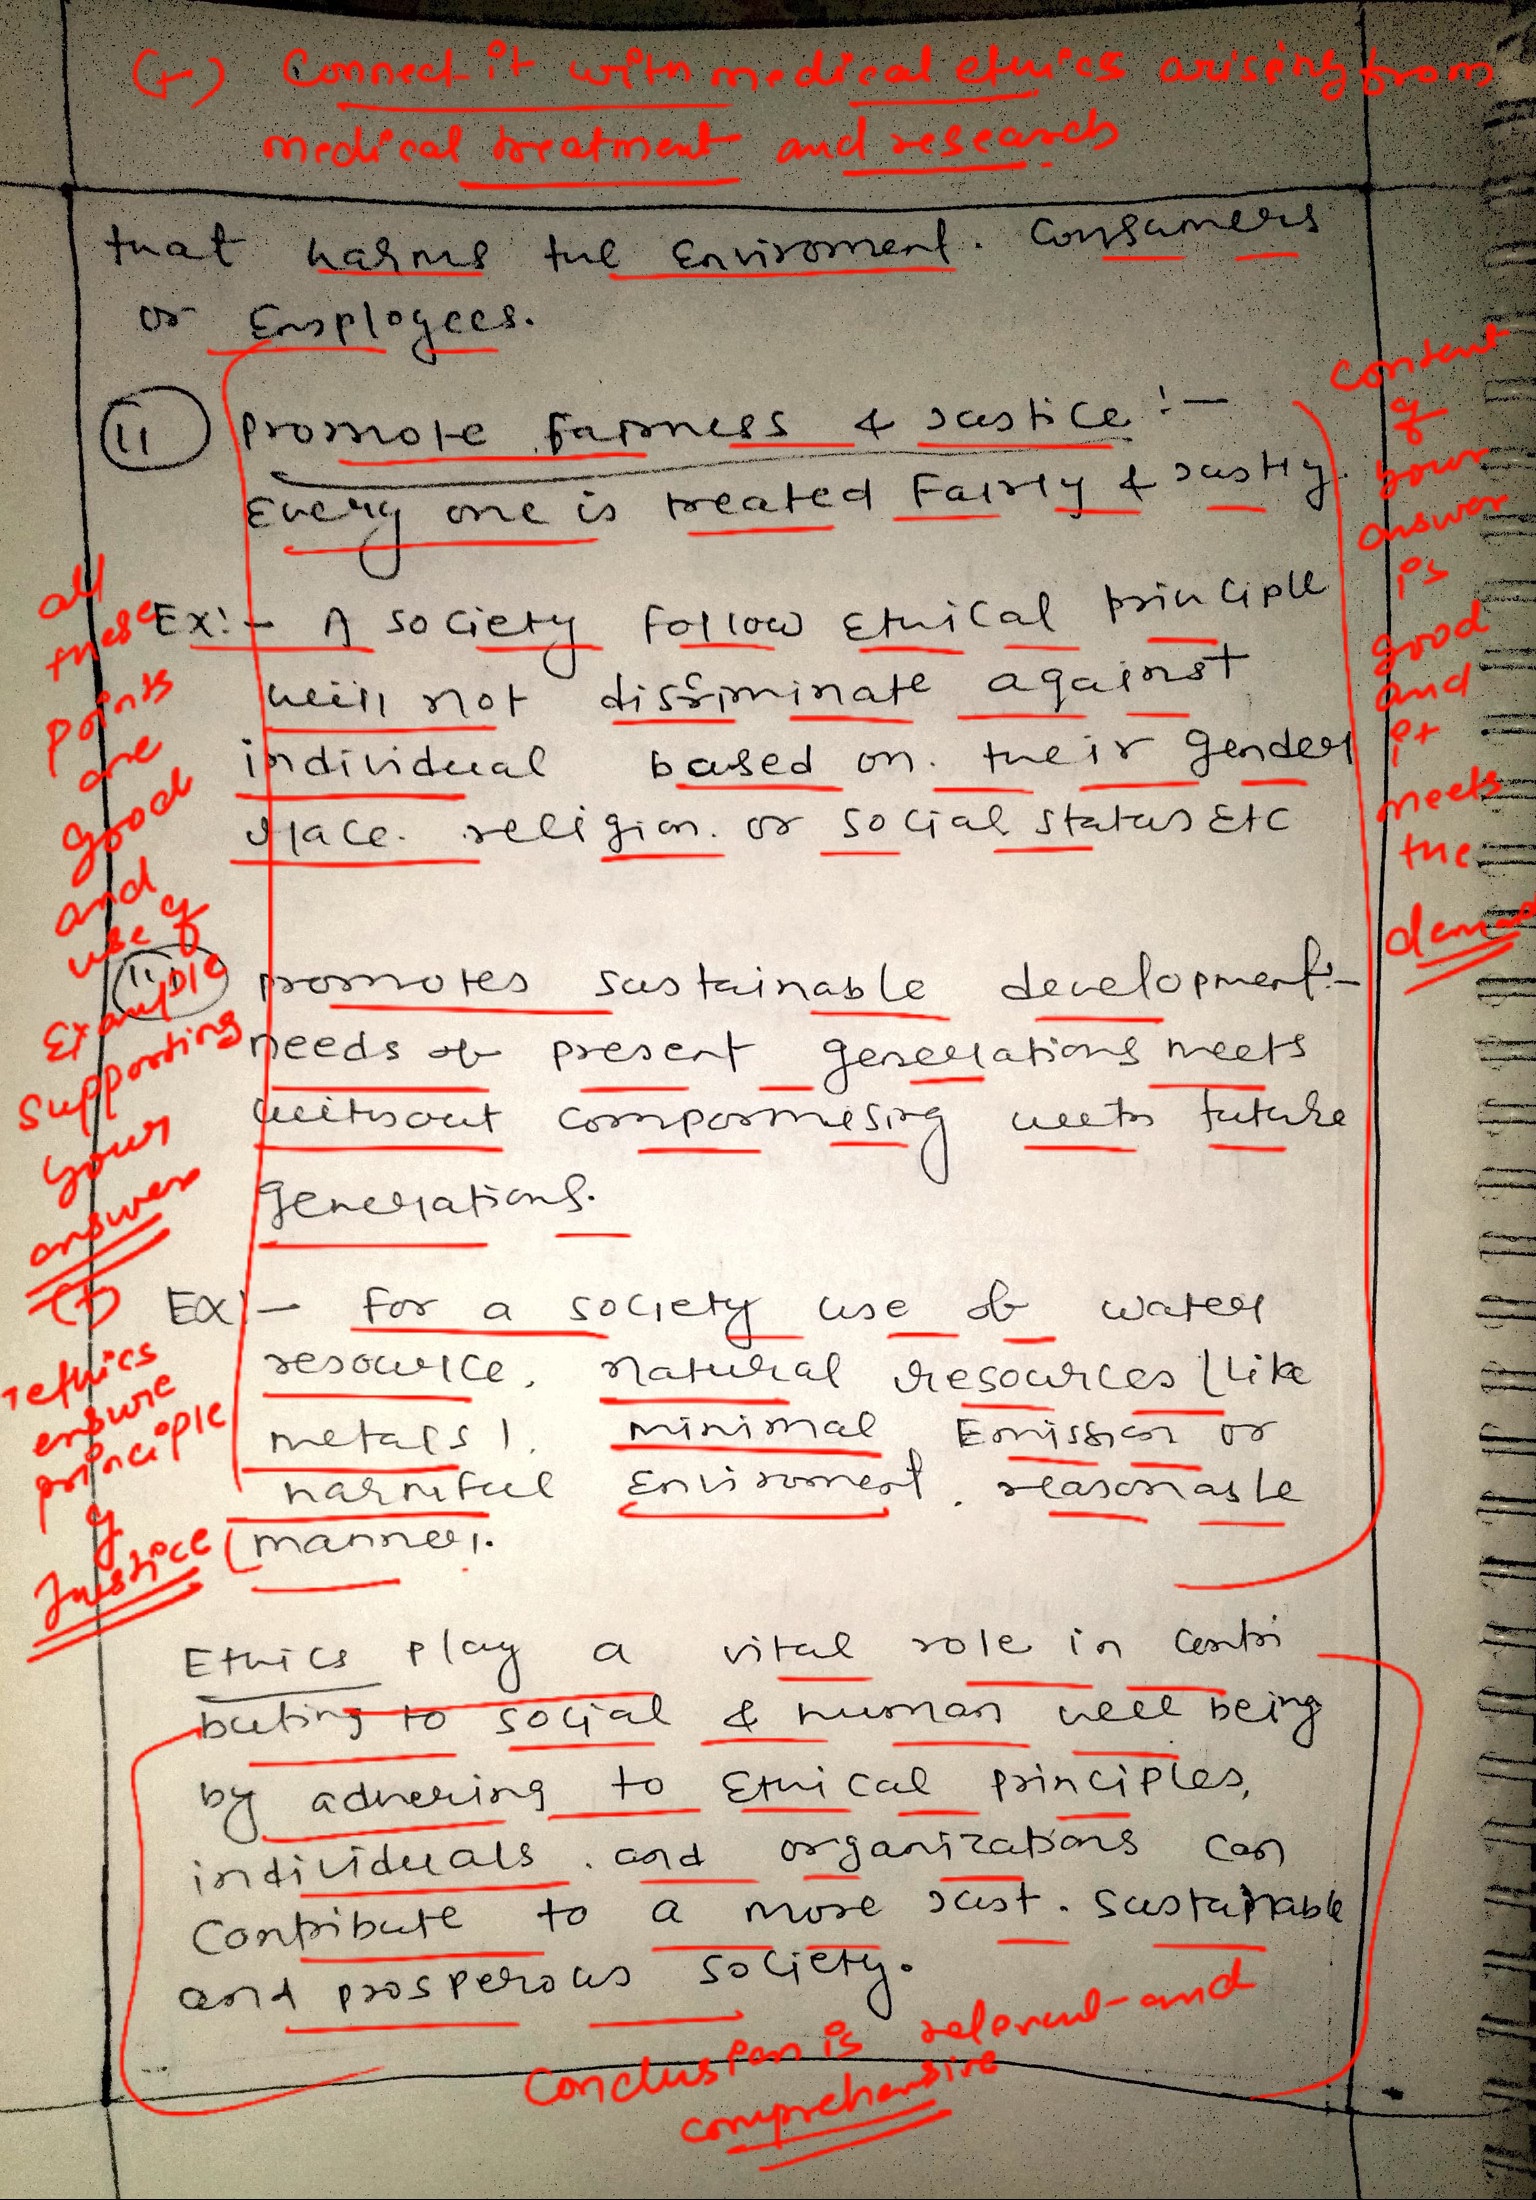 (+) Connect it with medical ethics arising from
medical treatment and research
that harms the Enviroment. Consumers
or Employees.
(ii) promote fairness & Justice :-
Every one is treated Fairly & Justly.
Ex:- A society follow Ethical principle
will not discriminate against
individual based on. their gender
race. religion. or social status Etc
(iii) promotes sustainable development:-
needs of present generations meets
without compormesing meets future
generations.
Ex:- for a society use of water
resource, natural resources (like
metals). minimal Emission or
harmful Enviroment, reasonable
manner.
Ethics play a vital role in contri
buting to social & human well being
by adhering to Ethical principles,
individuals. and organizations can
Contribute to a more Just. Sustainable
and prosperous society.
all
these
points
are
good
and
use of
Example
Supporting
your
answer
(+)
ethics
ensure
principle
of
Justice
Content
of
your
answer
is
good
and
it
meets
the
demand
Conclusion is relevant and
comprehensive